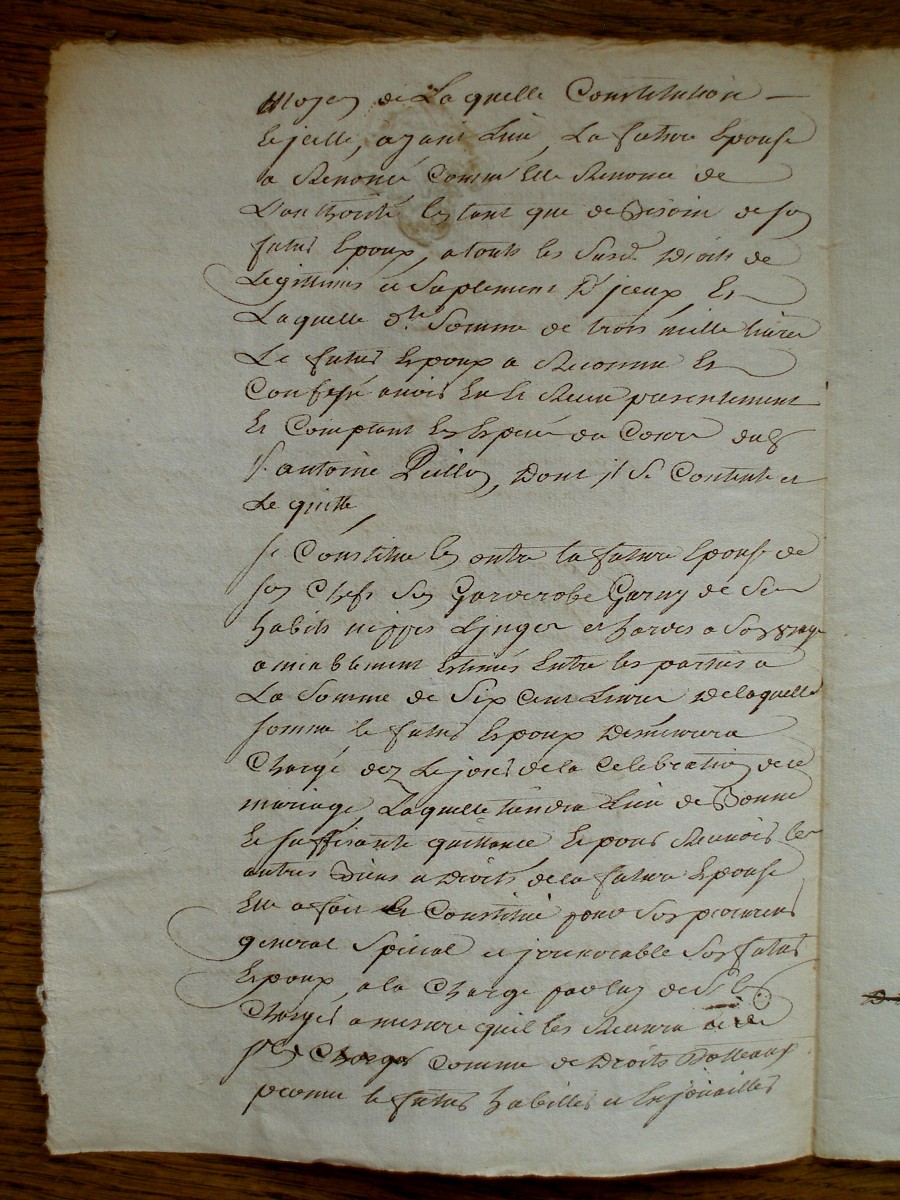 moyen de Laquelle Constitution
Et jcelle, ayant Lieu, La future Epouse
a Renoncé Comme Elle Renonce de
L'authorité En tant que de Besoin de son
futur Epoux, a touts les Susd. Droits de
Legitimes et Suplement D'jceux, Et
Laquelle dte Somme de trois mille livres
Le futur Epoux a Reconnu Et
Confessé avoir Eu et Receu presentement
Et Comptant En Especes du Cours dud
Sr. antoine, Dont jl Se Contente et
Le quitte,
Se Constitue En outre la future Epouse de
son Chef Son Garderobe Garny de Ses
habits nippes Linges et hardes a Son usage
amiablement Estimés Entre les parties a
La Somme de Six Cent Livres De laquelle
somme le futur Epoux Demeurera
Chargé dez Le jour de la Celebration de ce
mariage, Laquelle tiendra Lieu de Bonne
Et suffisante quittance Et pour Recevoir les
autres Biens et Droits de la future Epouse
Elle a fait et Constitué pour Son procureur
general Special et jrrevocable Son futur
Epoux, a la Charge par luy de S'en
Charger a mesure quil les Recevra
Comme de Droits Dotteaux
promet le futur habiller et Enjoailler